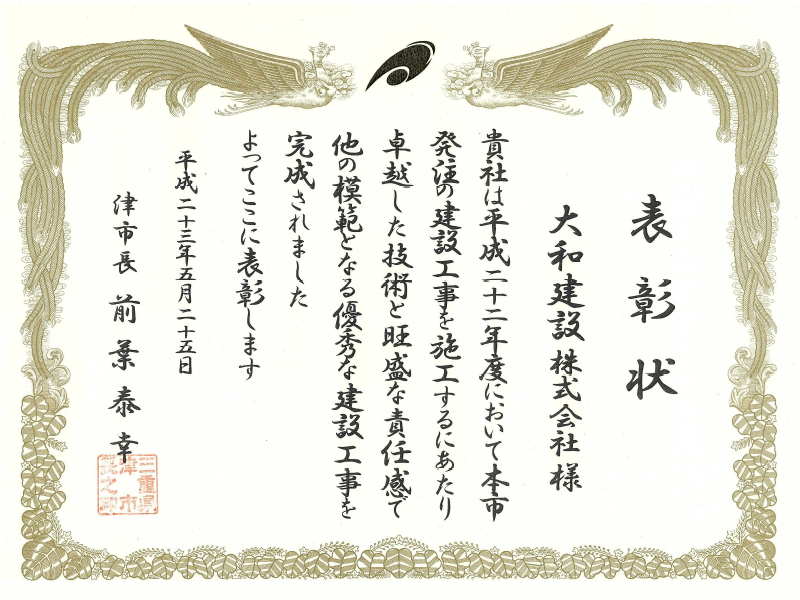 表彰状
大和建設株式会社様
貴社は平成二十二年度において本市
発注の建設工事を施工するにあたり
卓越した技術と旺盛な責任感で
他の模範となる優秀な建設工事を
完成されました
よってここに表彰します
平成二十三年五月二十五日
津市長 前葉泰幸